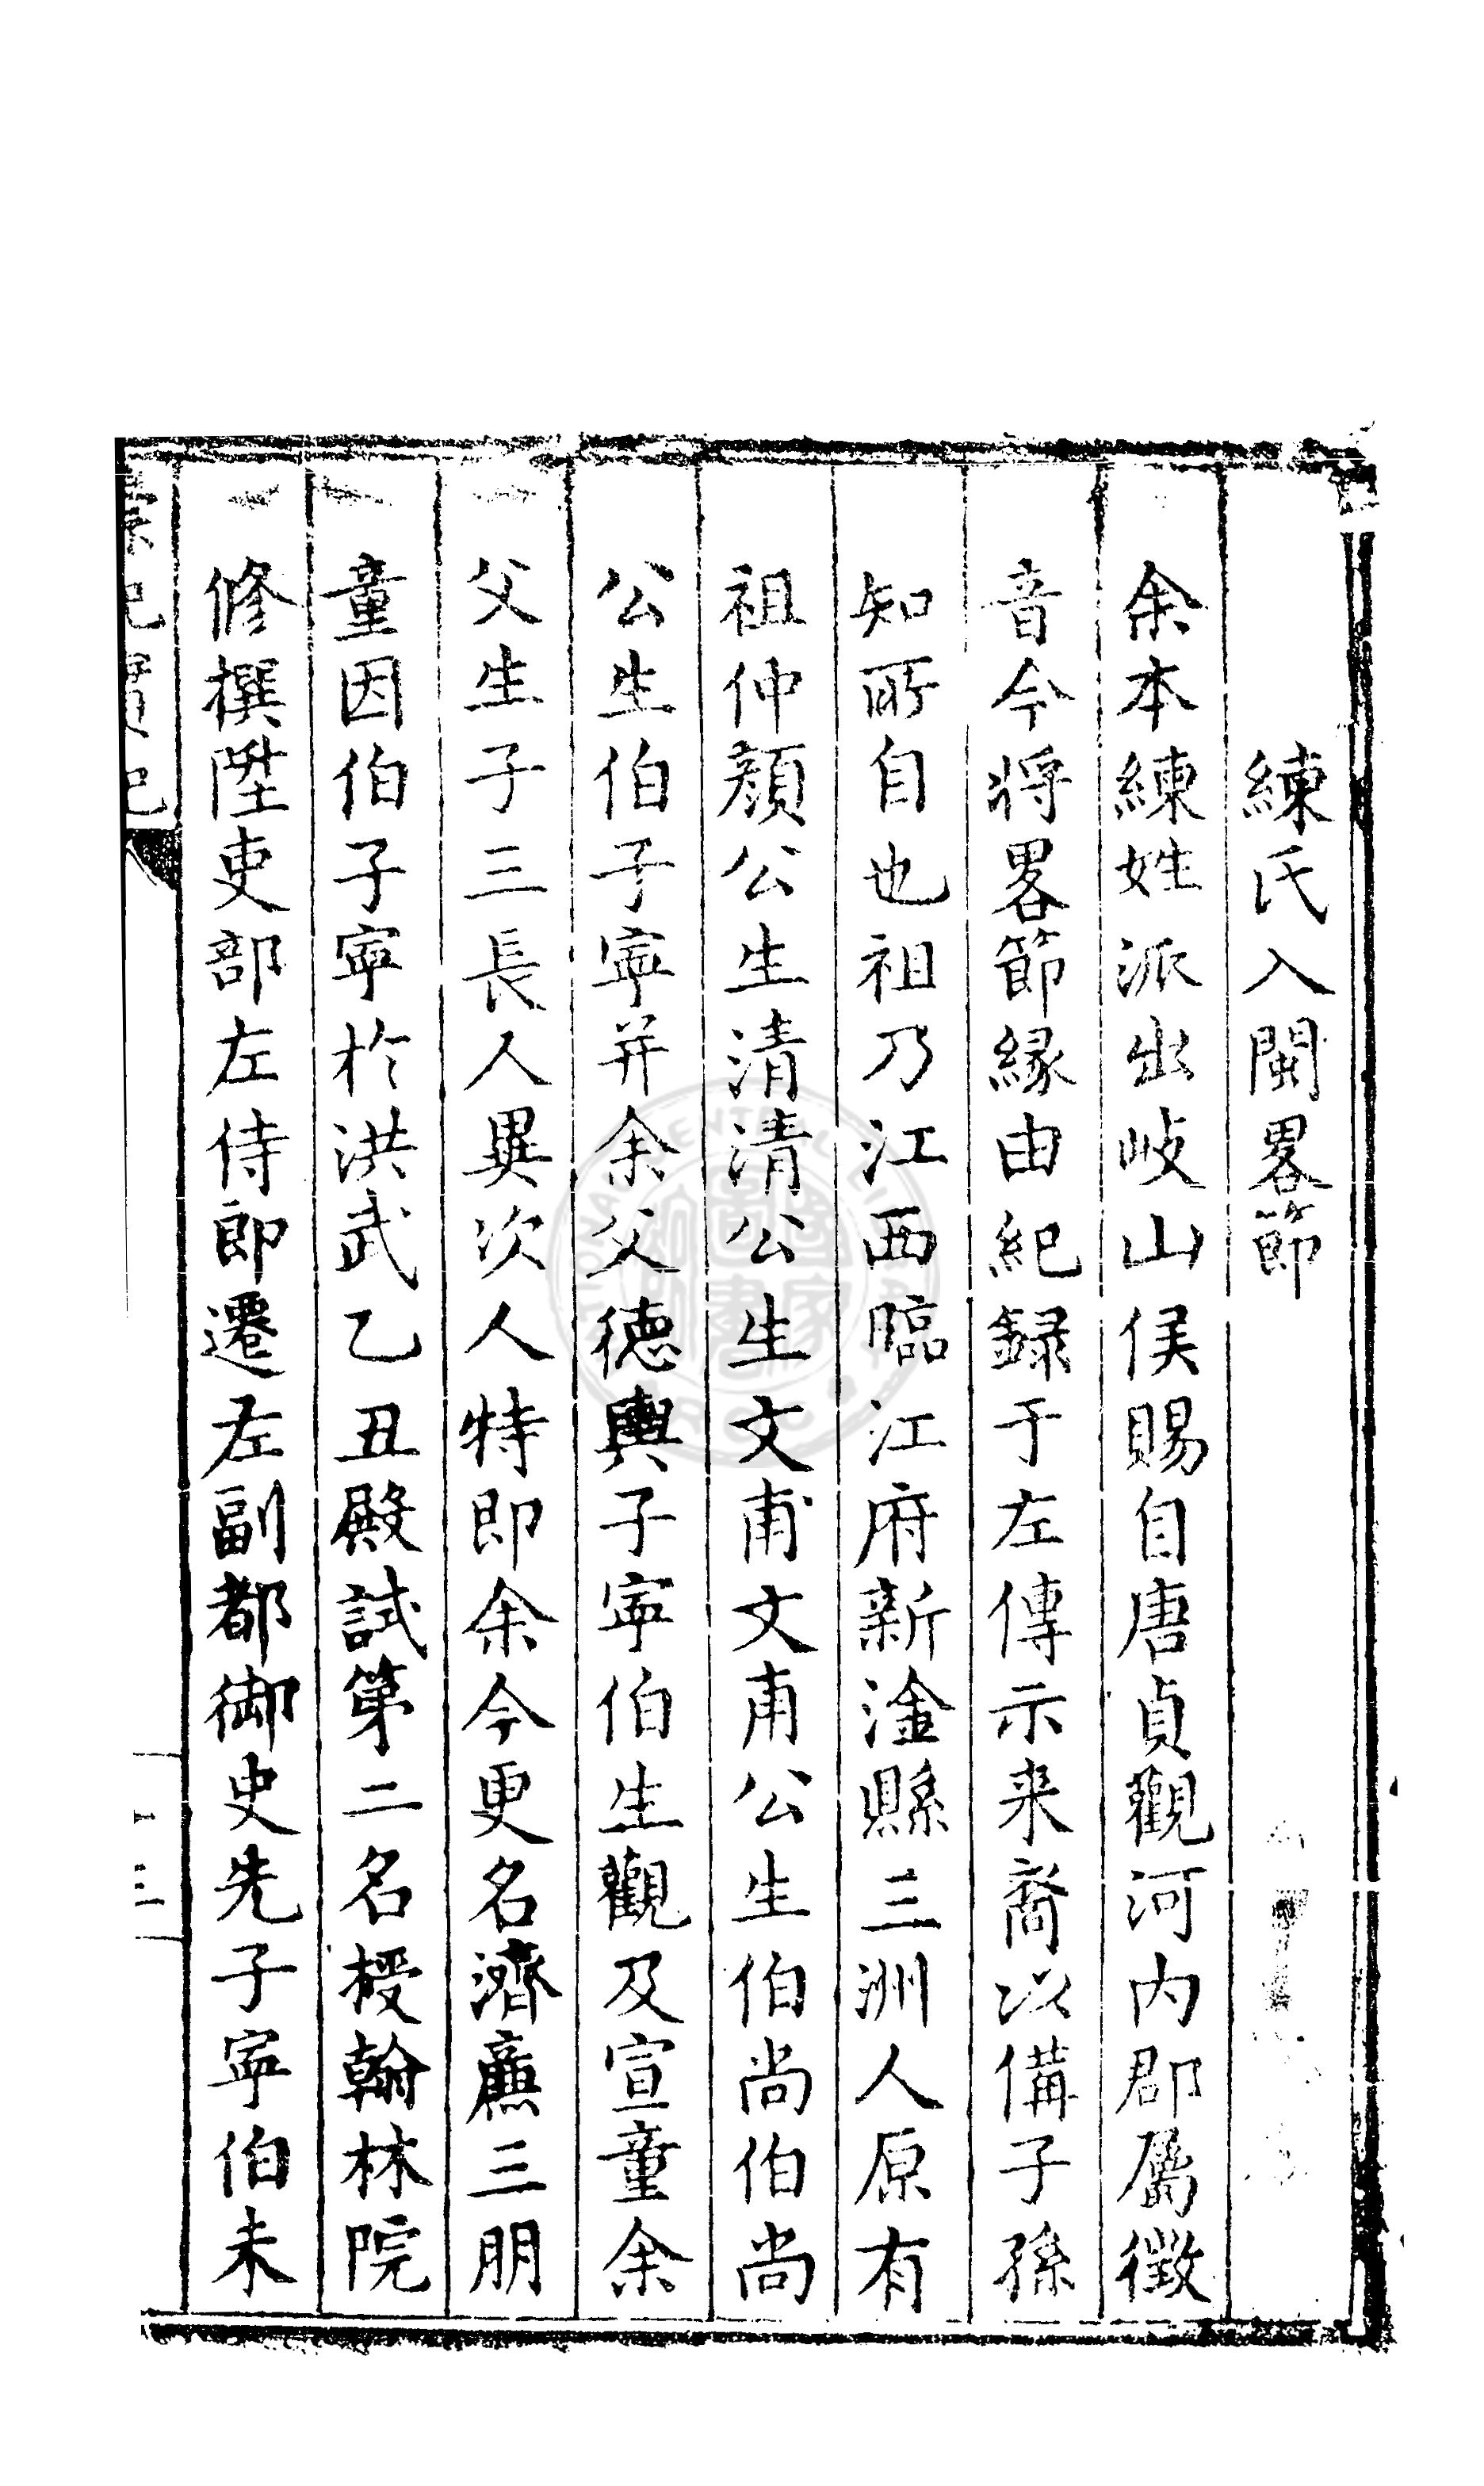 練氏入閩畧節
余本練姓派出岐山侯賜自唐貞觀河内郡屬徵
音今將畧節緣由紀録于左傳示来裔以備子孫
知所自也祖乃江西臨江府新淦縣三洲人原有
祖仲顔公生清清公生文甫文甫公生伯尚伯尚
公生伯子寕并余父德輿子寕伯生觀及宣童余
父生子三長人異次人特即余今更名濟㢘三朋
童因伯子寕扵洪武乙丑殿試第二名授翰林院
修撰陞吏部左侍郎遷左副都御史先子寕伯未